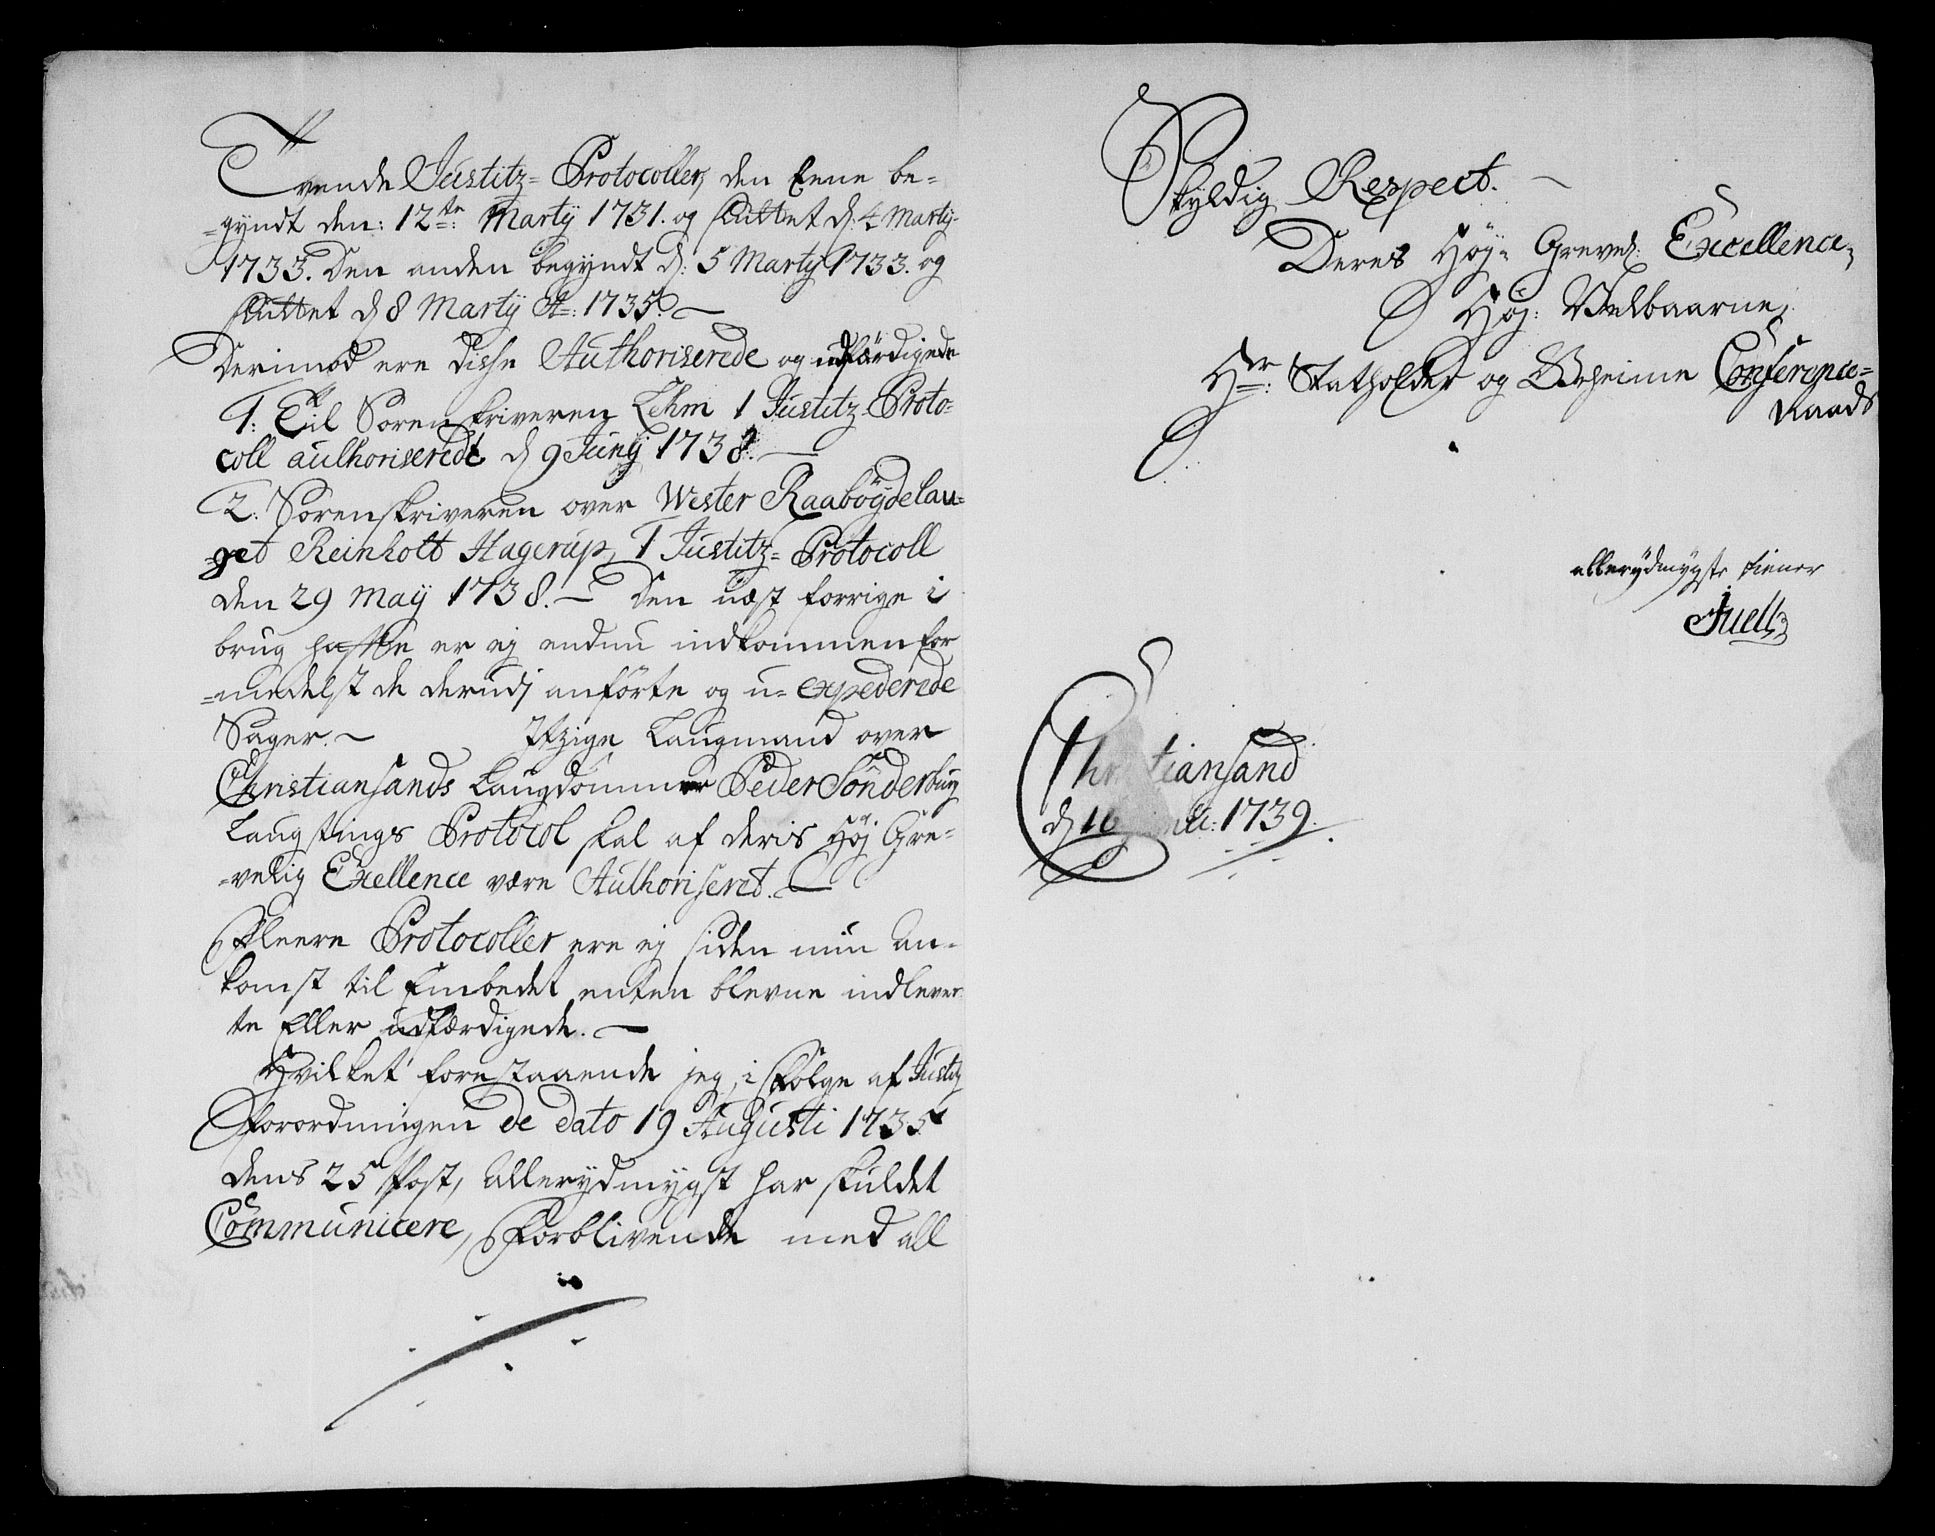 Tvende Justitz- Protocoller, den Eene be-
-gyndt den: 12te: Marty 1731. og sluttet d: 4 Marty
1733. Den anden begyndt d: 5 Marty 1733. og
sluttet d 8 Marty A: 1735. —
Derimod ere disse Authoriserede og udfærdigede
1: Til Sorenskriveren Lehm 1 Justitz-Proto-
coll authoriseret d 9 Junÿ 1738. —
2. Sorenskriveren over Wester Raabøydelau-
-get Reinholt Hagerup, 1 Justitz- Protocoll
den 29 Maÿ 1738. — Den næst forrige i
brug hafte er ej endnu indkommen for
-medelst de derudj anførte og u- expederede
Sager. — Itzige Laugmand over
Christiansands Laugdømmer Peder Sønderburg
Laugtings Protocol skal af deris Høj Gre-
-velig Excellence være Authoriseret. —
Fleere Protocoller ere ej siden min An-
komst til Embedet enten blevne indlever
te Eller udfærdigede. —
Hvilket forestaaende jeg, i følge af Justitz
Forordningen de dato 19 Augusti 1735
dens 25 Post, allerydmygst har skuldet
Communicere, Forblivende med all
Skyldig Respect. —
Deres Høy- Grevel: Excellence,
Høj: Velbaarne,
Hr: Statholder og Geheime Conference-
Raads
allerydmygste tiener
Juell
Christiansand
d 16 1739.